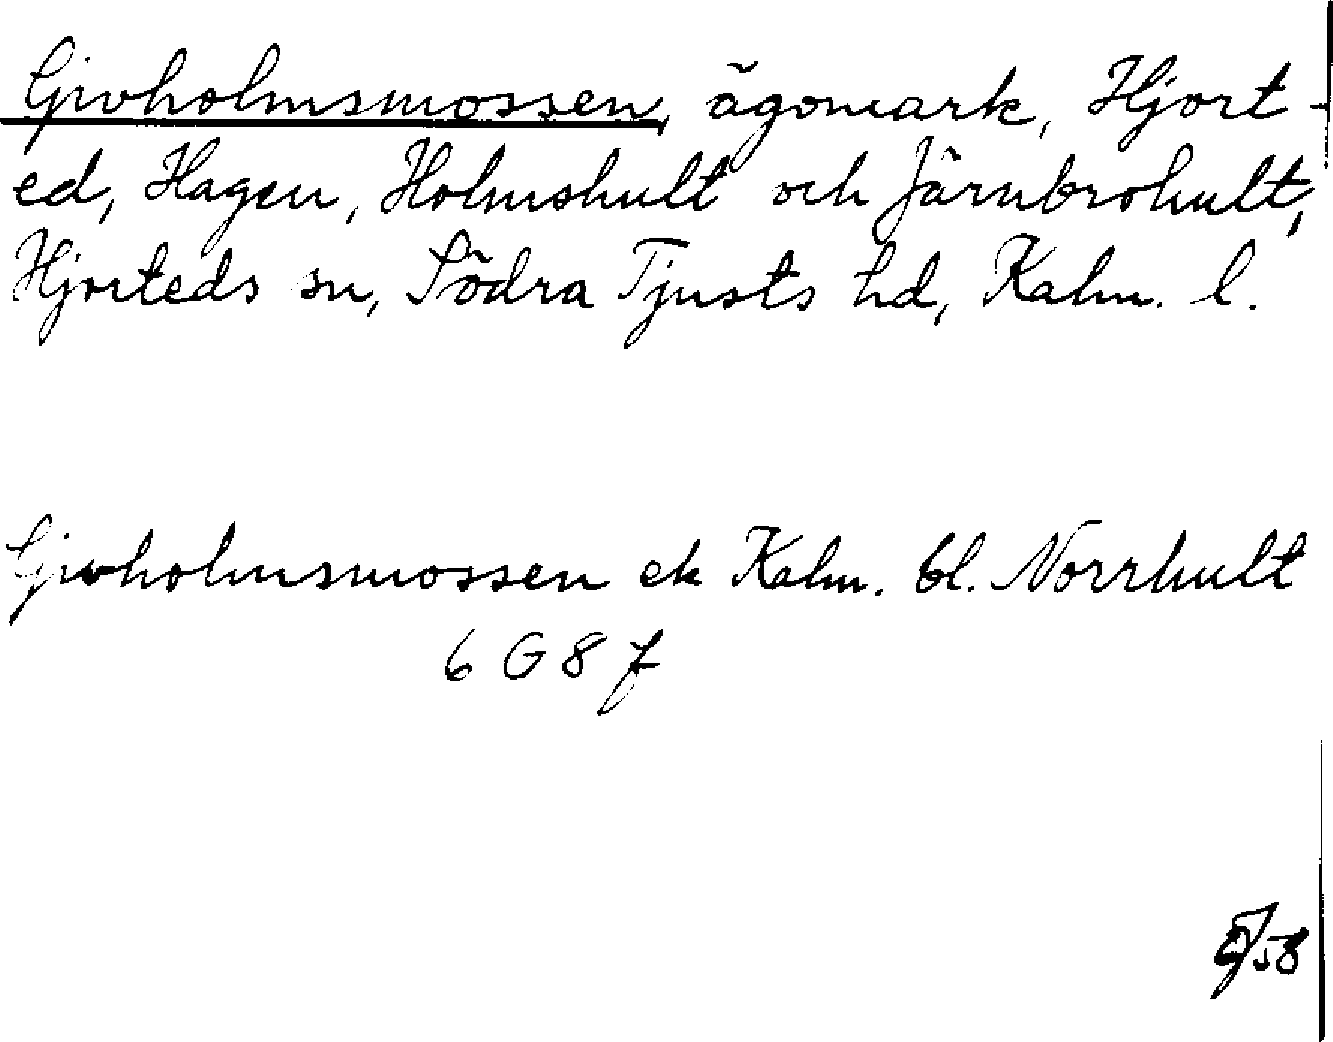 Givholmsmossen, ägomark, Hjort-
ed, Hagen, Holmshult och Järnbrohult,
Hjorteds sn, Södra Tjusts hd, Kalm. l.
Givholmsmossen ek Kalm. bl. Norrhult
6 G 8 f